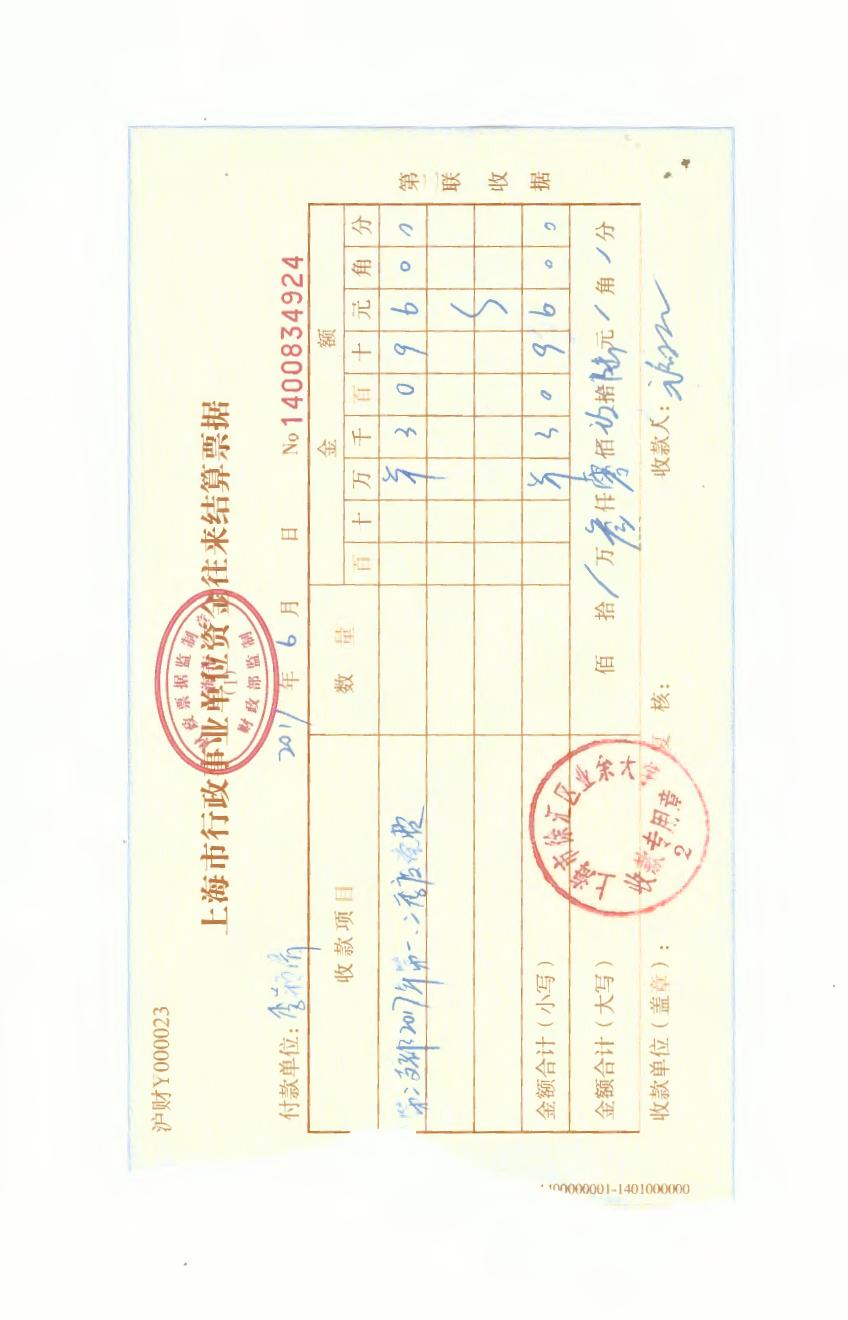 沪财Y000023
上海市行政事业单位资金往来结算票据
财政票据监制
财政部监制
付款单位：
2017年6月 日 No 1400834924
收款项目 数量 金额
百 十 万 千 百 十 元 角 分
第二支部2017年第一、二季度党费 ¥ 3 0 9 6 0 0
金额合计（小写） ¥ 3 0 9 6 0 0
金额合计（大写） 佰 拾 / 万 叁 仟 零 佰 玖 拾 陆 元 / 角 / 分
收款单位（盖章）： 复核： 收款人：
上海市徐汇区业余大学
收款专用章
2
第二联 收据
1400000001-1401000000